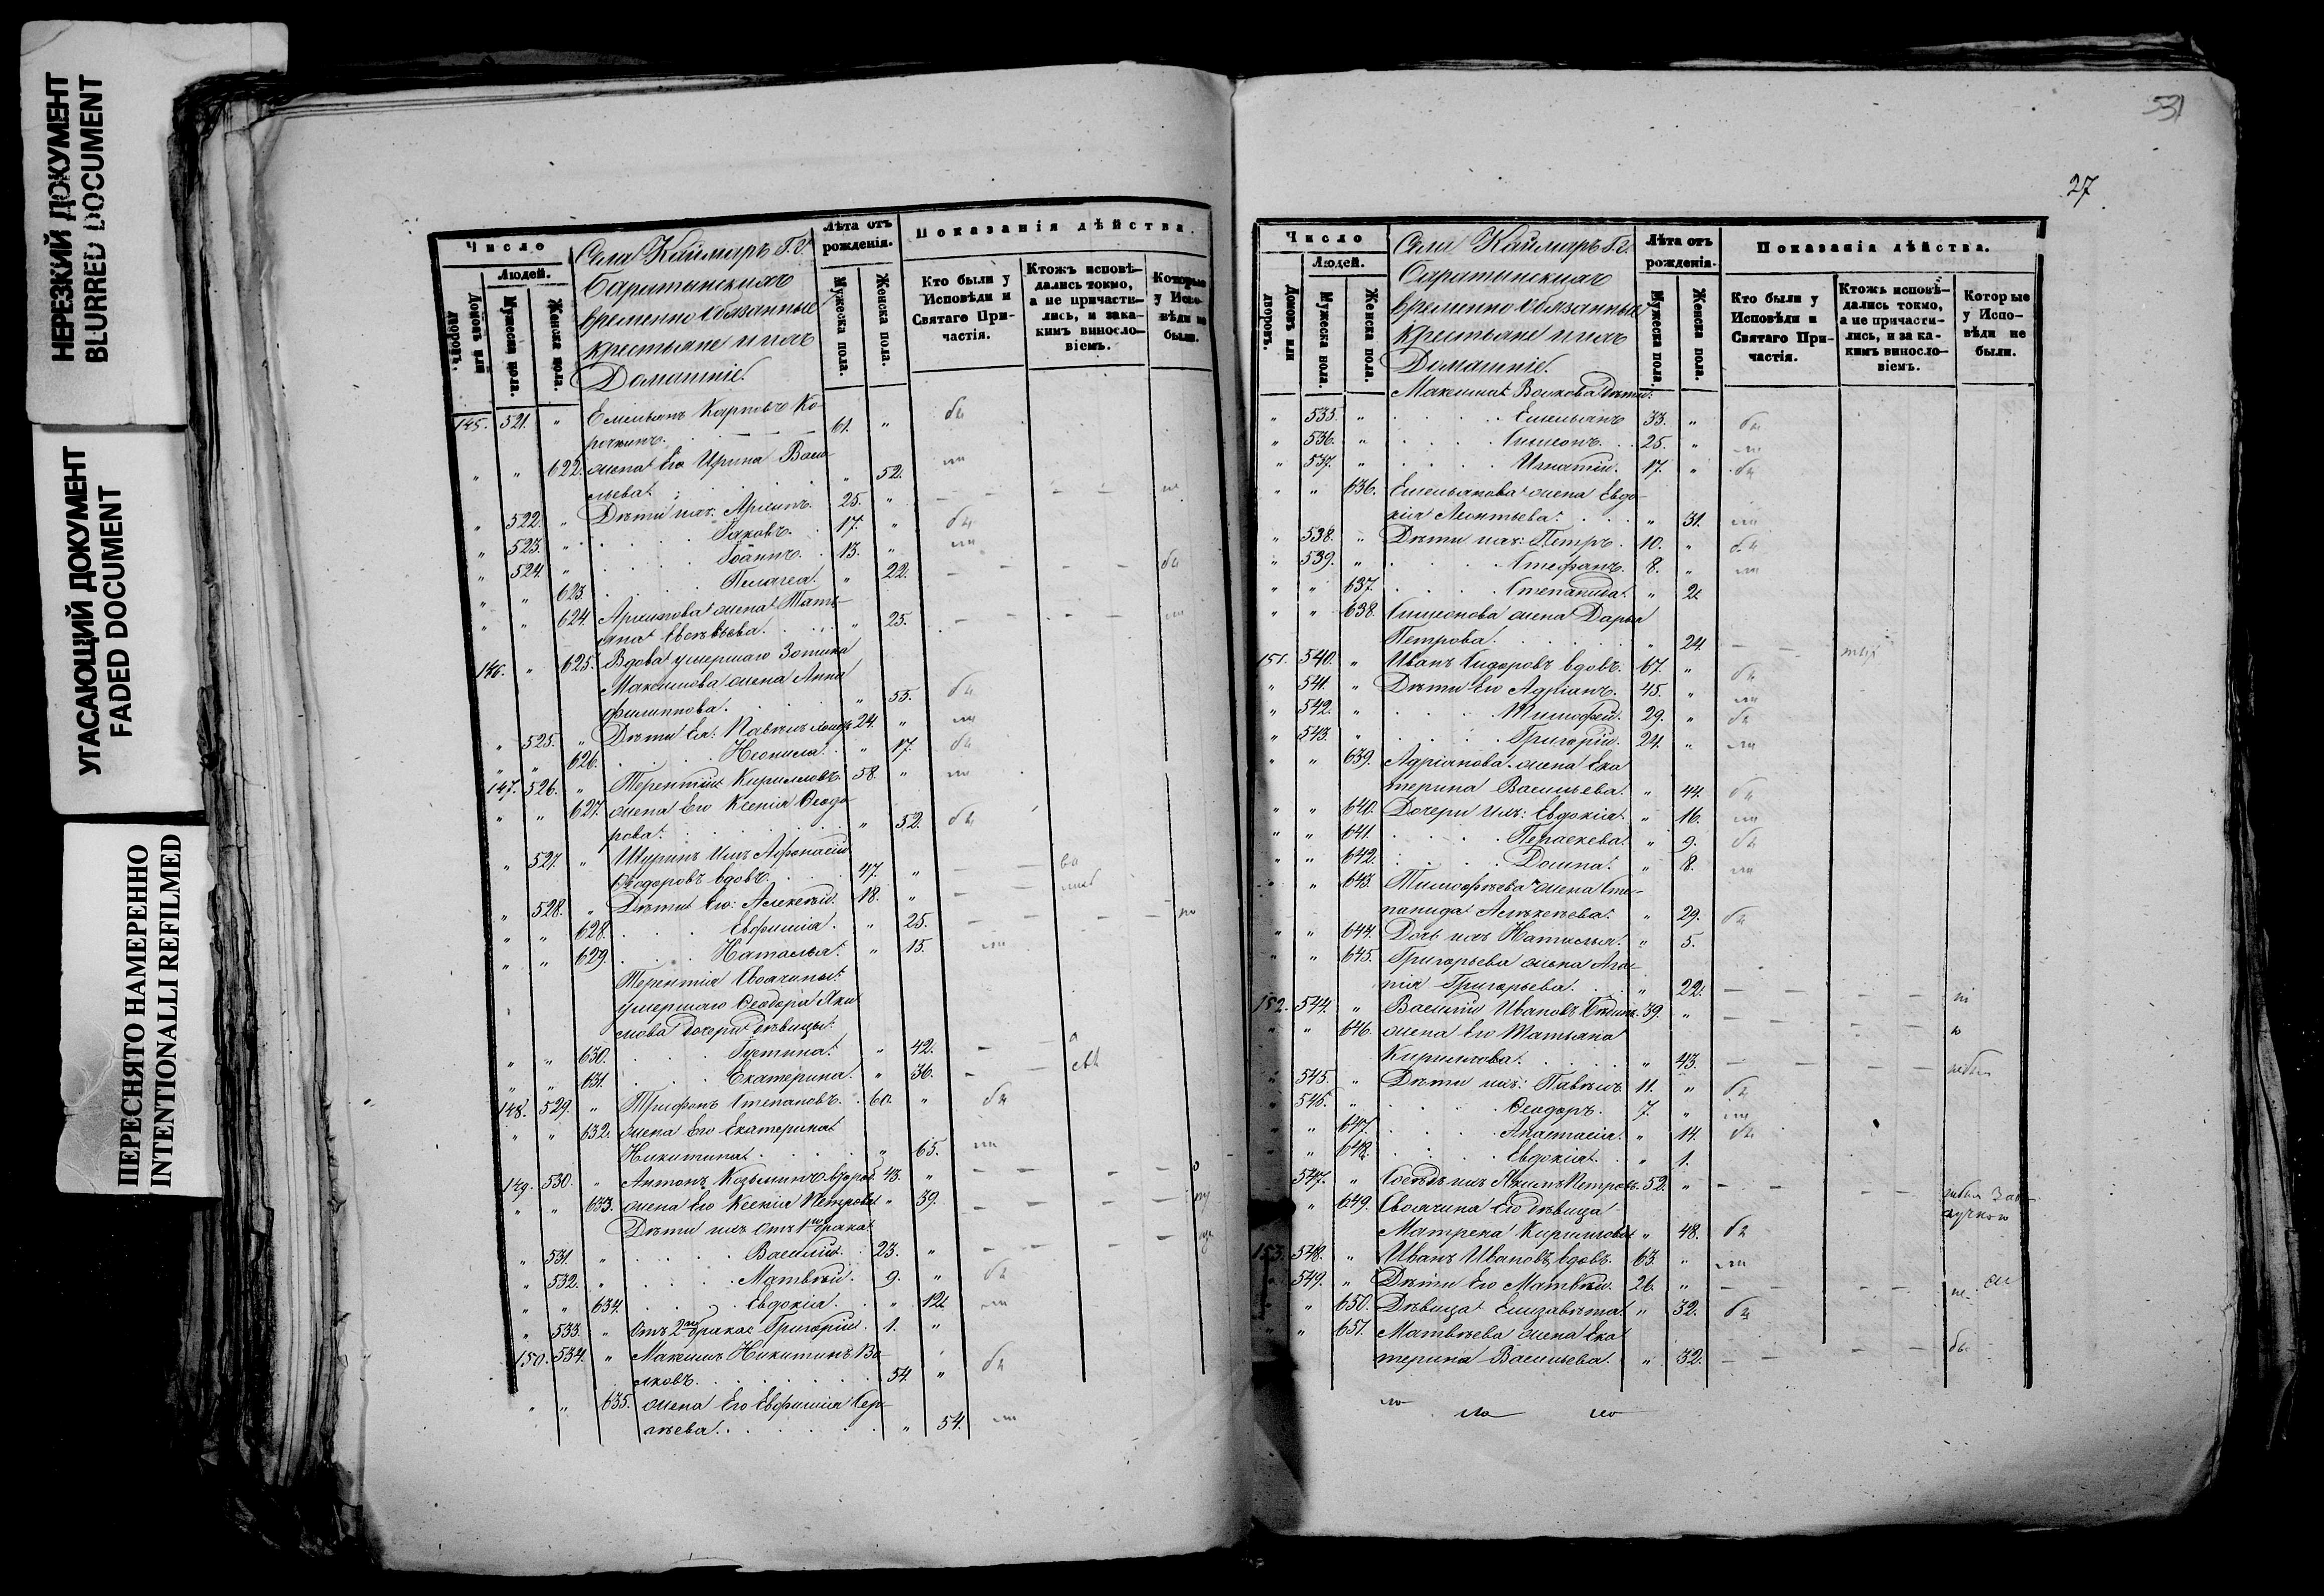 НЕРЕЗКИЙ ДОКУМЕНТ
BLURRED DOCUMENT
УГАСАЮЩИЙ ДОКУМЕНТ
FADED DOCUMENT
ПЕРЕСНЯТО НАМЕРЕННО
INTENTIONALLI REFILMED
Число
Людей.
Домовъ или дворовъ.
Мужеска пола.
Женска пола.
Села Каймаръ Г.г.
Баратынскихъ
временно обязанные
крестьяне и ихъ
Домашніе.
Лѣта отъ рожденія.
Мужеска пола.
Женска пола.
Показанія дѣйства.
Кто были у Исповѣди и Святаго Причастія.
Ктожъ исповѣдались токмо, а не причастились, и за какимъ винословіемъ.
Которые у Исповѣди не были.
145. 521. " Емельянъ Карповъ Ко-
рочкинъ. 61. "
" " 622. жена Его Ирина Васи-
льева. " 52.
" 522. " Дѣти ихъ: 25. "
" 523. " Іаковъ. 17. "
" 524. " Іоаннъ. 13. "
" " 623. Пелагея. " 22.
" " 624. жена Тать-
яна " 25.
146. " 625. Вдова умершаго Зотика
Максимова жена Анна
Филиппова. " 55.
" 525. " Дѣти Ея: Павелъ 24. "
" " 626. Неонила. " 17.
147. 526. " Терентій Кирилловъ. 58. "
" " 627. жена Его Ксенія Ѳеодо-
рова. " 52.
" 527. " Шуринъ Ихъ Афонасій
Ѳеодоровъ вдовъ. 47. "
" 528. " Дѣти Его: Алексѣй. 18. "
" " 628. Евфимія. " 25.
" " 629. Наталья. " 15.
Терентія Своячины
умершаго Ѳеодора Яки-
мова дочери дѣвицы:
" " 630. Іустина. " 42.
" " 631. Екатерина. " 36.
148. 529. " Трифонъ Степановъ. 60. "
" " 632. жена Его Екатерина
Никитина. " 65.
149. 530. " Антонъ Козьминъ 43. "
" " 633. жена Его Ксенія Петрова " 39.
Дѣти ихъ отъ 1го брака:
" 531. " Василій. 23. "
" 532. " Матвѣй. 9. "
" " 634. Евдокія. " 12.
" 533. " Отъ 2го брака: Григорій. 1. "
150. 534. " Максимъ Никитинъ Во-
лковъ. 54. "
" " 635. жена Его Евфимія Сер-
гѣева. " 54.
531
27
Число
Людей.
Домовъ или дворовъ.
Мужеска пола.
Женска пола.
Села Каймаръ Г.г.
Баратынскихъ
временно обязанные
крестьяне и ихъ
Домашніе.
Лѣта отъ рожденія.
Мужеска пола.
Женска пола.
Показанія дѣйства.
Кто были у Исповѣди и Святаго Причастія.
Ктожъ исповѣдались токмо, а не причастились, и за какимъ винословіемъ.
Которые у Исповѣди не были.
Максима Волкова дѣти:
" 535. " Емельянъ 33. "
" 536. " Симеонъ. 25. "
" 537. " Игнатій. 17. "
" " 636. Емельянова жена Евдо-
кія Леонтьева. " 31.
" 538. " Дѣти ихъ: Петръ. 10. "
" 539. " Стефанъ. 8. "
" " 637. Степанида. " 2.
" " 638. Симеонова жена Дарья
Петрова. " 24.
151. 540. " Иванъ Сидоровъ вдовъ. 67. "
" 541. " Дѣти Его Адріанъ. 45. "
" 542. " Тимофей. 29. "
" 543. " Григорій. 24. "
" " 639. Адріанова жена Ека-
терина Васильева. " 44.
" " 640. Дочери ихъ: Евдокія. " 16.
" " 641. Параскева. " 9.
" " 642. Домна. " 8.
" " 643. Тимофѣева жена Сте-
панида Алексѣева. " 29.
" " 644. Дочь ихъ Наталья. " 5.
" " 645. Григорьева жена Ага-
пія Григорьева. " 22.
152. 544. " Василій Ивановъ 39. "
" " 646. жена Его Татьяна
Кириллова. " 43.
" 545. " Дѣти ихъ: Павелъ. 11. "
" 546. " Ѳеодоръ. 7. "
" " 647. Анастасія. " 14.
" " 648. Евдокія. " 1.
547. " Сосѣдъ ихъ Петровъ. 52. "
" 649. Своячина Его дѣвица
Матрена Кириллова " 48.
153. 548. " Иванъ Ивановъ, вдовъ. 63. "
549. " Дѣти Его Матвѣй. 26. "
" 650. Дѣвица Елизавета. " 32.
" 651. Матвѣева жена Ека-
терина Васильева. " 32.